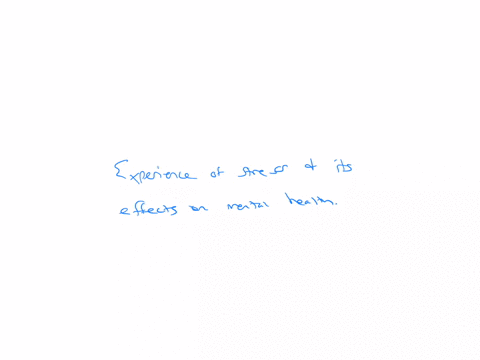 Experience of stress & its
effects on mental health.